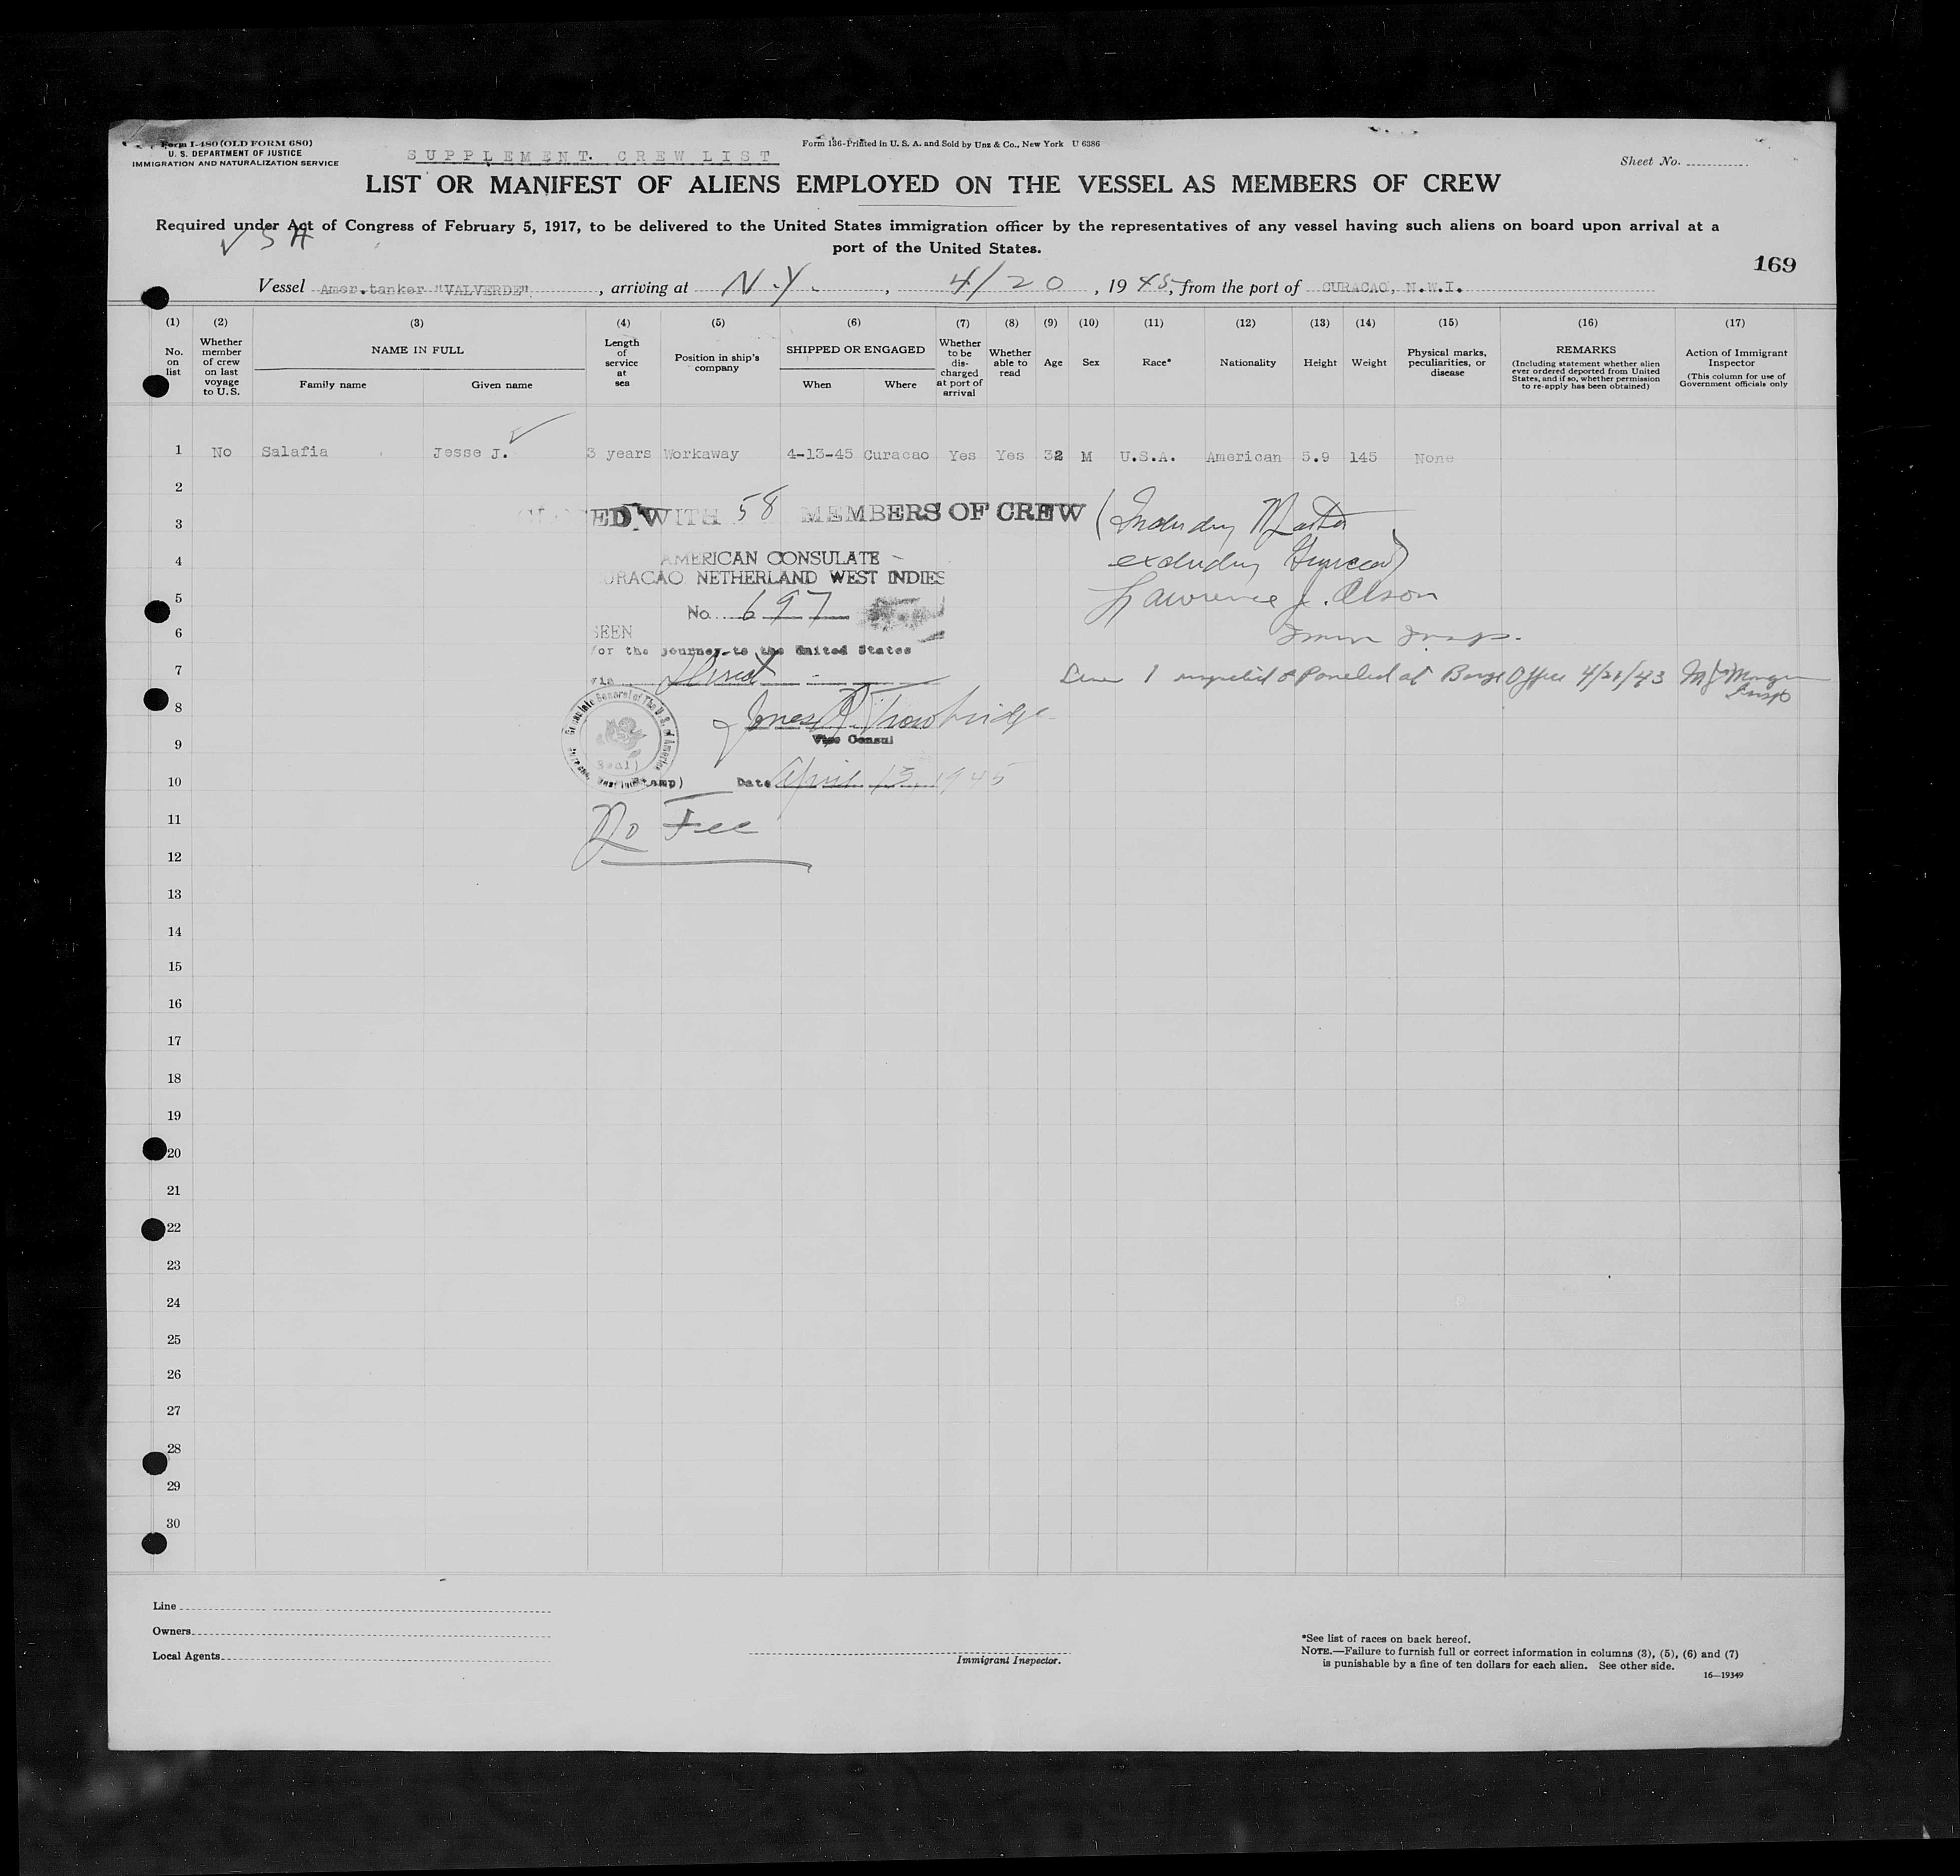 Form I-480 (OLD FORM 680)
U. S. DEPARTMENT OF JUSTICE
IMMIGRATION AND NATURALIZATION SERVICE
SUPPLEMENT. CREW LIST
Form 136-Printed in U. S. A. and Sold by Unz & Co., New York U 6386
Sheet No.
LIST OR MANIFEST OF ALIENS EMPLOYED ON THE VESSEL AS MEMBERS OF CREW
Required under Act of Congress of February 5, 1917, to be delivered to the United States immigration officer by the representatives of any vessel having such aliens on board upon arrival at a
port of the United States.
169
Vessel Amer.tanker "VALVERDE", arriving at N.Y., 4/20, 1945, from the port of CURACAO, N.W.I.
(1) (2) (3) (4) (5) (6) (7) (8) (9) (10) (11) (12) (13) (14) (15) (16) (17)
No. on list
Whether member of crew on last voyage to U.S.
NAME IN FULL
Family name
Given name
Length of service at sea
Position in ship's company
SHIPPED OR ENGAGED
When
Where
Whether to be discharged at port of arrival
Whether able to read
Age
Sex
Race*
Nationality
Height
Weight
Physical marks, peculiarities, or disease
REMARKS
(Including statement whether alien ever ordered deported from United States, and if so, whether permission to re-apply has been obtained)
Action of Immigrant Inspector
(This column for use of Government officials only
1 No Salafia Jesse J. 3 years Workaway 4-13-45 Curacao Yes Yes 32 M U.S.A. American 5.9 145 None
2
3
WITH 58 MEMBERS OF CREW (Including Master
4
AMERICAN CONSULATE
excluding
CURACAO NETHERLAND WEST INDIES
5
Lawrence J. Olson
No. 697
6
SEEN
for the journey to the United States
7
via direct
Line 1 inspected & Paroled at Barge Office 4/21/43
8
James R. Trowbridge
Vice Consul
9
10
(Seal)
Stamp)
Date April 13, 1945
11
No Fee
12
13
14
15
16
17
18
19
20
21
22
23
24
25
26
27
28
29
30
Line
Owners
Local Agents
Immigrant Inspector.
*See list of races on back hereof.
NOTE.—Failure to furnish full or correct information in columns (3), (5), (6) and (7)
is punishable by a fine of ten dollars for each alien. See other side.
16—19349